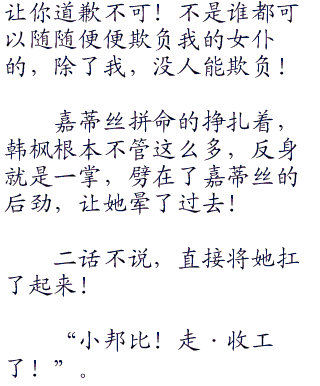 让你道歉不可！不是谁都可
以随随便便欺负我的女仆
的，除了我，没人能欺负！
嘉蒂丝拼命的挣扎着，
韩枫根本不管这么多，反身
就是一掌，劈在了嘉蒂丝的
后劲，让她晕了过去！
二话不说，直接将她扛
了起来！
“小邦比！走·收工
了！”。